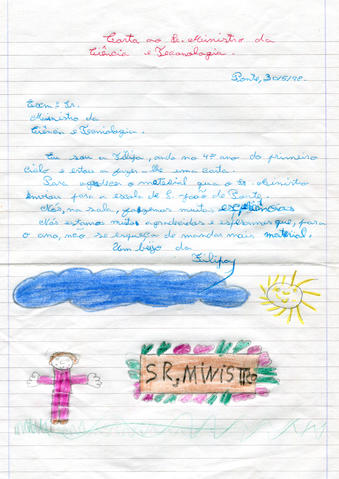 Carta ao Sr. Ministro da
Ciência e Tecnologia.
Ponte, 30/5/98.
Exmº Sr.
Ministro da
Ciência e Tecnologia.
Eu sou a Filipa, ando no 4º ano do primeiro
ciclo e estou a fazer-lhe uma carta.
Para agradecer o material que o Sr. Ministro
enviou para a escola de S. João de Ponte.
Nós, na sala, fazemos muitas experiências
Nós estamos muito agradecidos e esperamos que, para
o ano, não se esqueça de mandar mais material.
Um beijo da
Filipa
SR. MINISTRO